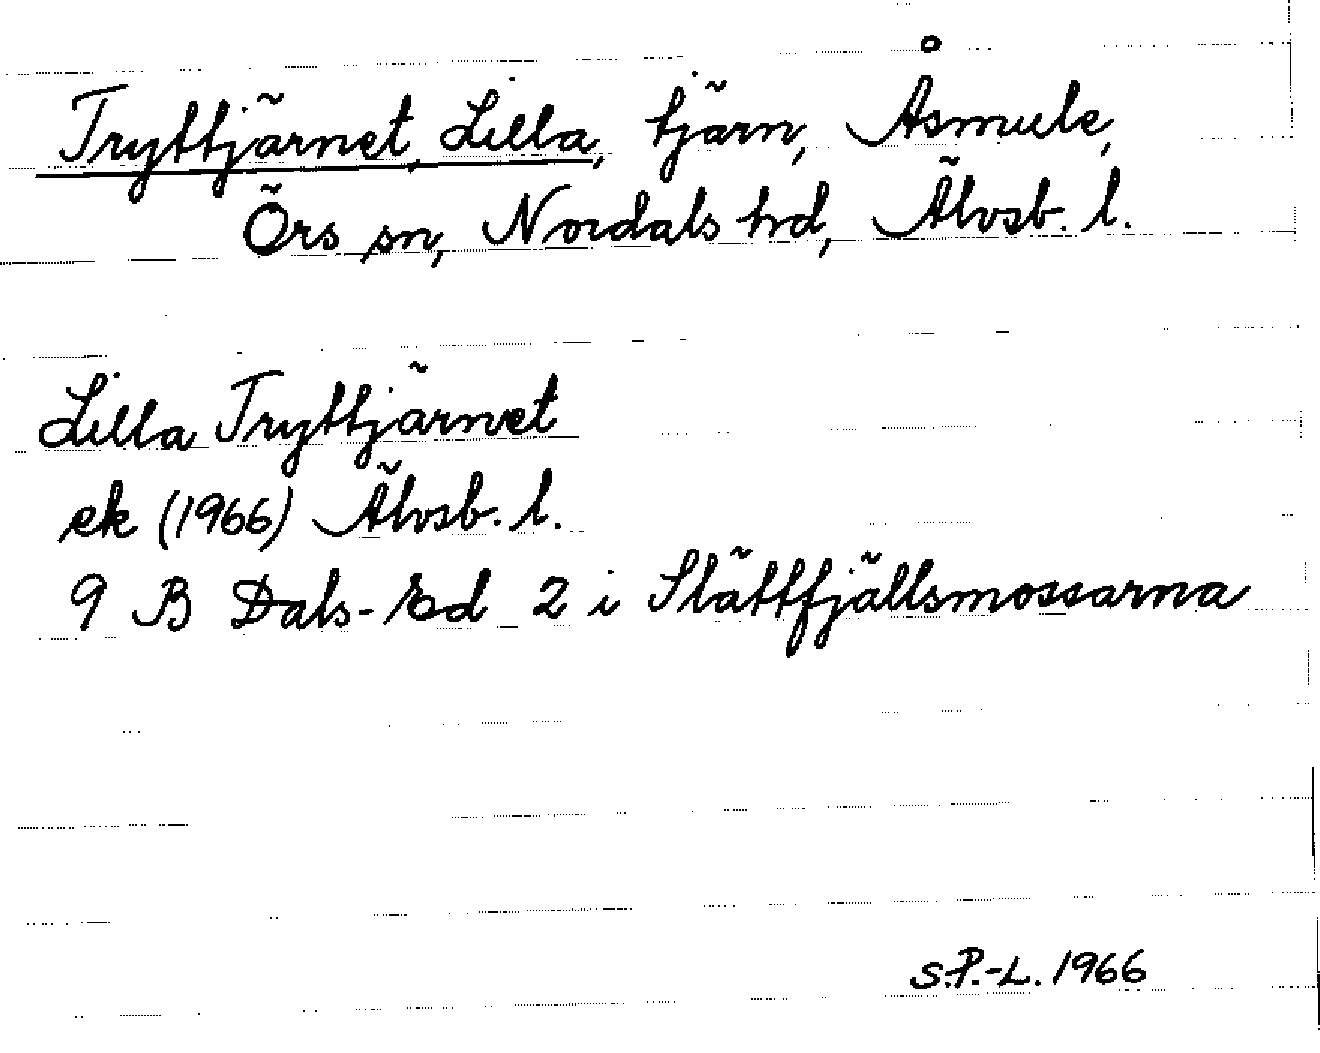 Tryttjärnet, Lilla, tjärn, Åsmule,
Örs sn, Nordals hd, Älvsb. l.
Lilla Tryttjärnet
ek (1966) Älvsb. l.
9 B Dals-Ed 2 i Slättfjällsmossarna
S.P.-L. 1966